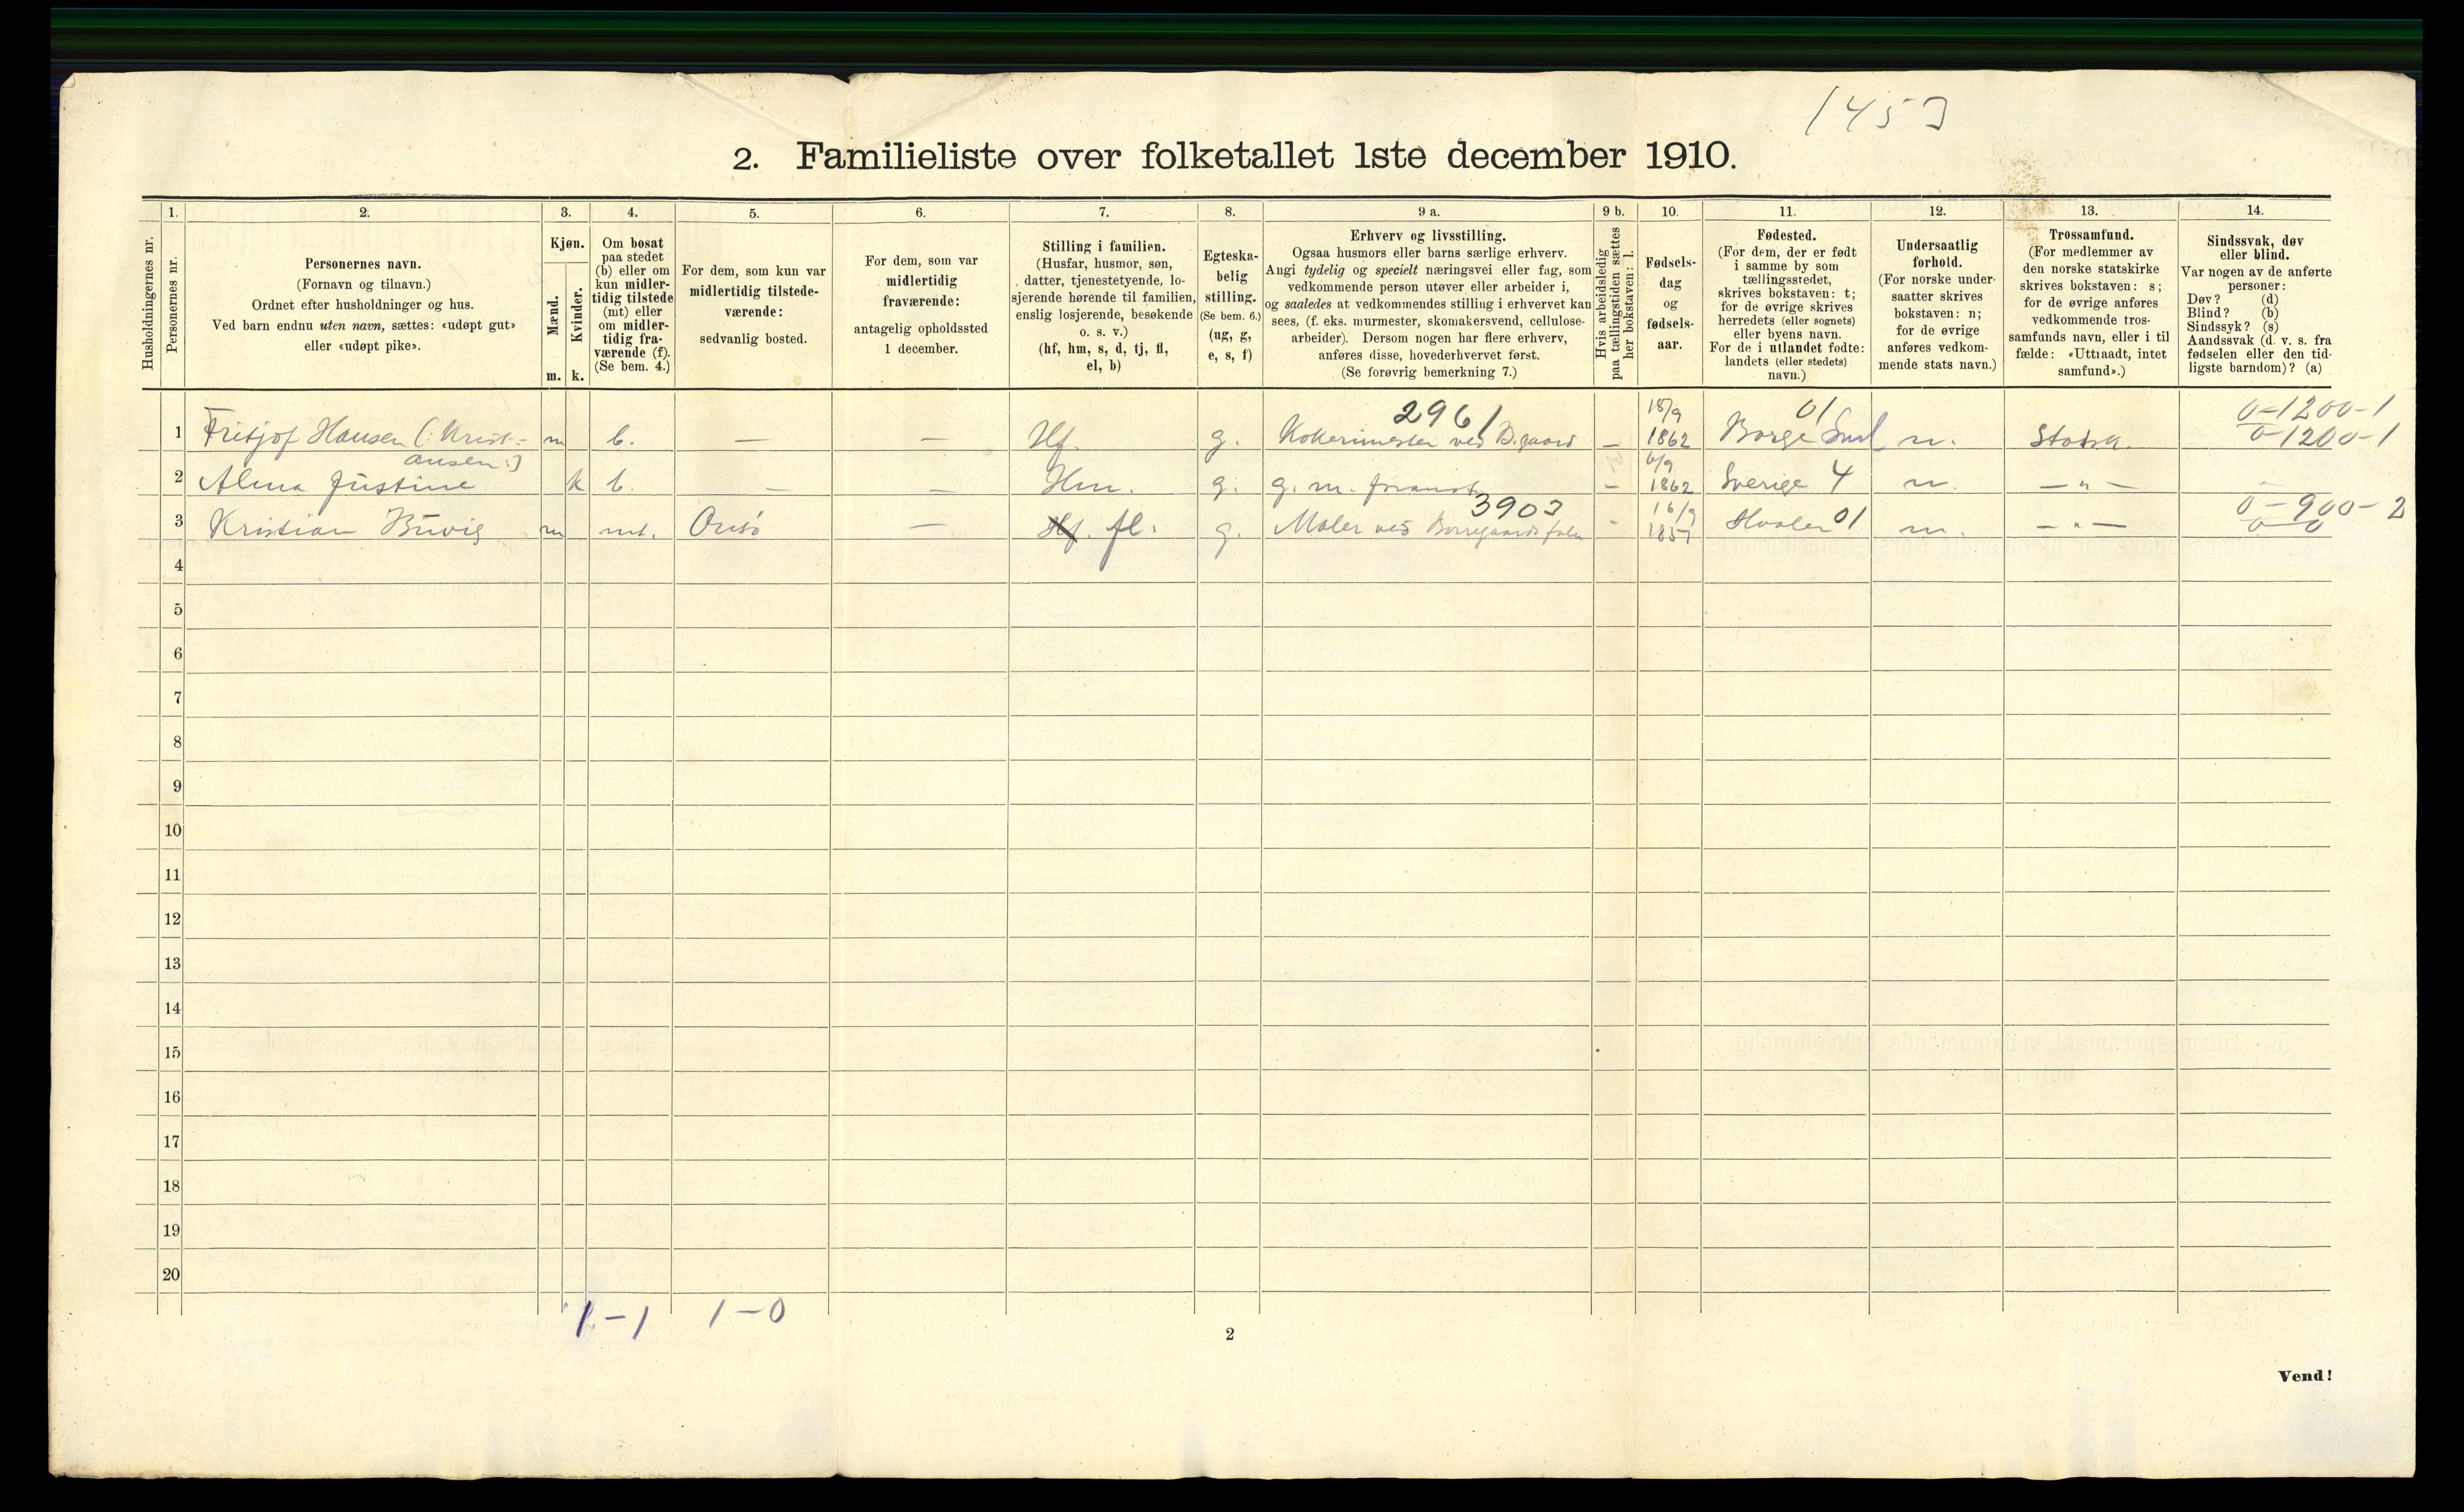 1453
2. Familieliste over folketallet 1ste december 1910.
1. 2. 3. 4. 5. 6. 7. 8. 9 a. 9 b. 10. 11. 12. 13. 14.
Husholdningernes nr.
Personernes nr.
Personernes navn.
(Fornavn og tilnavn.)
Ordnet efter husholdninger og hus.
Ved barn endnu uten navn, sættes: «udøpt gut»
eller «udøpt pike».
Kjøn.
Mænd.
Kvinder.
m. k.
Om bosat
paa stedet
(b) eller om
kun midler-
tidig tilstede
(mt) eller
om midler-
tidig fra-
værende (f).
(Se bem. 4.)
For dem, som kun var
midlertidig tilstede-
værende:
sedvanlig bosted.
For dem, som var
midlertidig
fraværende:
antagelig opholdssted
1 december.
Stilling i familien.
(Husfar, husmor, søn,
datter, tjenestetyende, lo-
sjerende hørende til familien,
enslig losjerende, besøkende
o. s. v.)
(hf, hm, s, d, tj, fl,
el, b)
Egteska-
belig
stilling.
(Se bem. 6.)
(ug, g,
e, s, f)
Erhverv og livsstilling.
Ogsaa husmors eller barns særlige erhverv.
Angi tydelig og specielt næringsvei eller fag, som
vedkommende person utøver eller arbeider i,
og saaledes at vedkommendes stilling i erhvervet kan
sees, (f. eks. murmester, skomakersvend, cellulose-
arbeider). Dersom nogen har flere erhverv,
anføres disse, hovederhvervet først.
(Se forøvrig bemerkning 7.)
Hvis arbeidsledig
paa tællingstiden sættes
her bokstaven: l.
Fødsels-
dag
og
fødsels-
aar.
Fødested.
(For dem, der er født
i samme by som
tællingsstedet,
skrives bokstaven: t;
for de øvrige skrives
herredets (eller sognets)
eller byens navn.
For de i utlandet fødte:
landets (eller stedets)
navn.)
Undersaatlig
forhold.
(For norske under-
saatter skrives
bokstaven: n;
for de øvrige
anføres vedkom-
mende stats navn.)
Trossamfund.
(For medlemmer av
den norske statskirke
skrives bokstaven: s;
for de øvrige anføres
vedkommende tros-
samfunds navn, eller i til
fælde: «Uttraadt, intet
samfund».)
Sindssvak, døv
eller blind.
Var nogen av de anførte
personer:
Døv? (d)
Blind? (b)
Sindssyk? (s)
Aandssvak (d. v. s. fra
fødselen eller den tid-
ligste barndom)? (a)
2961 18/9 01 0-1200-1
1 Fritjof Hansen (: Krist- m b. — — Hf. g. Kokerimester ved B.gaard — 1862 Borge n. Statsk. 0-1200-1
ansen:)
6/9
2 Alma Justine k b. — — Hm. g. g. m. foranst. — 1862 Sverige 4 n. — " —
3903 16/9 0-900-2
3 Kristian Buvig m mt. Onsö — Hf. fl. g. Maler ved Borregaards - 1857 Hvaler 01 n. — " — 0 0
4
5
6
7
8
9
10
11
12
13
14
15
16
17
18
19
20
1-1 1-0
2
Vend!